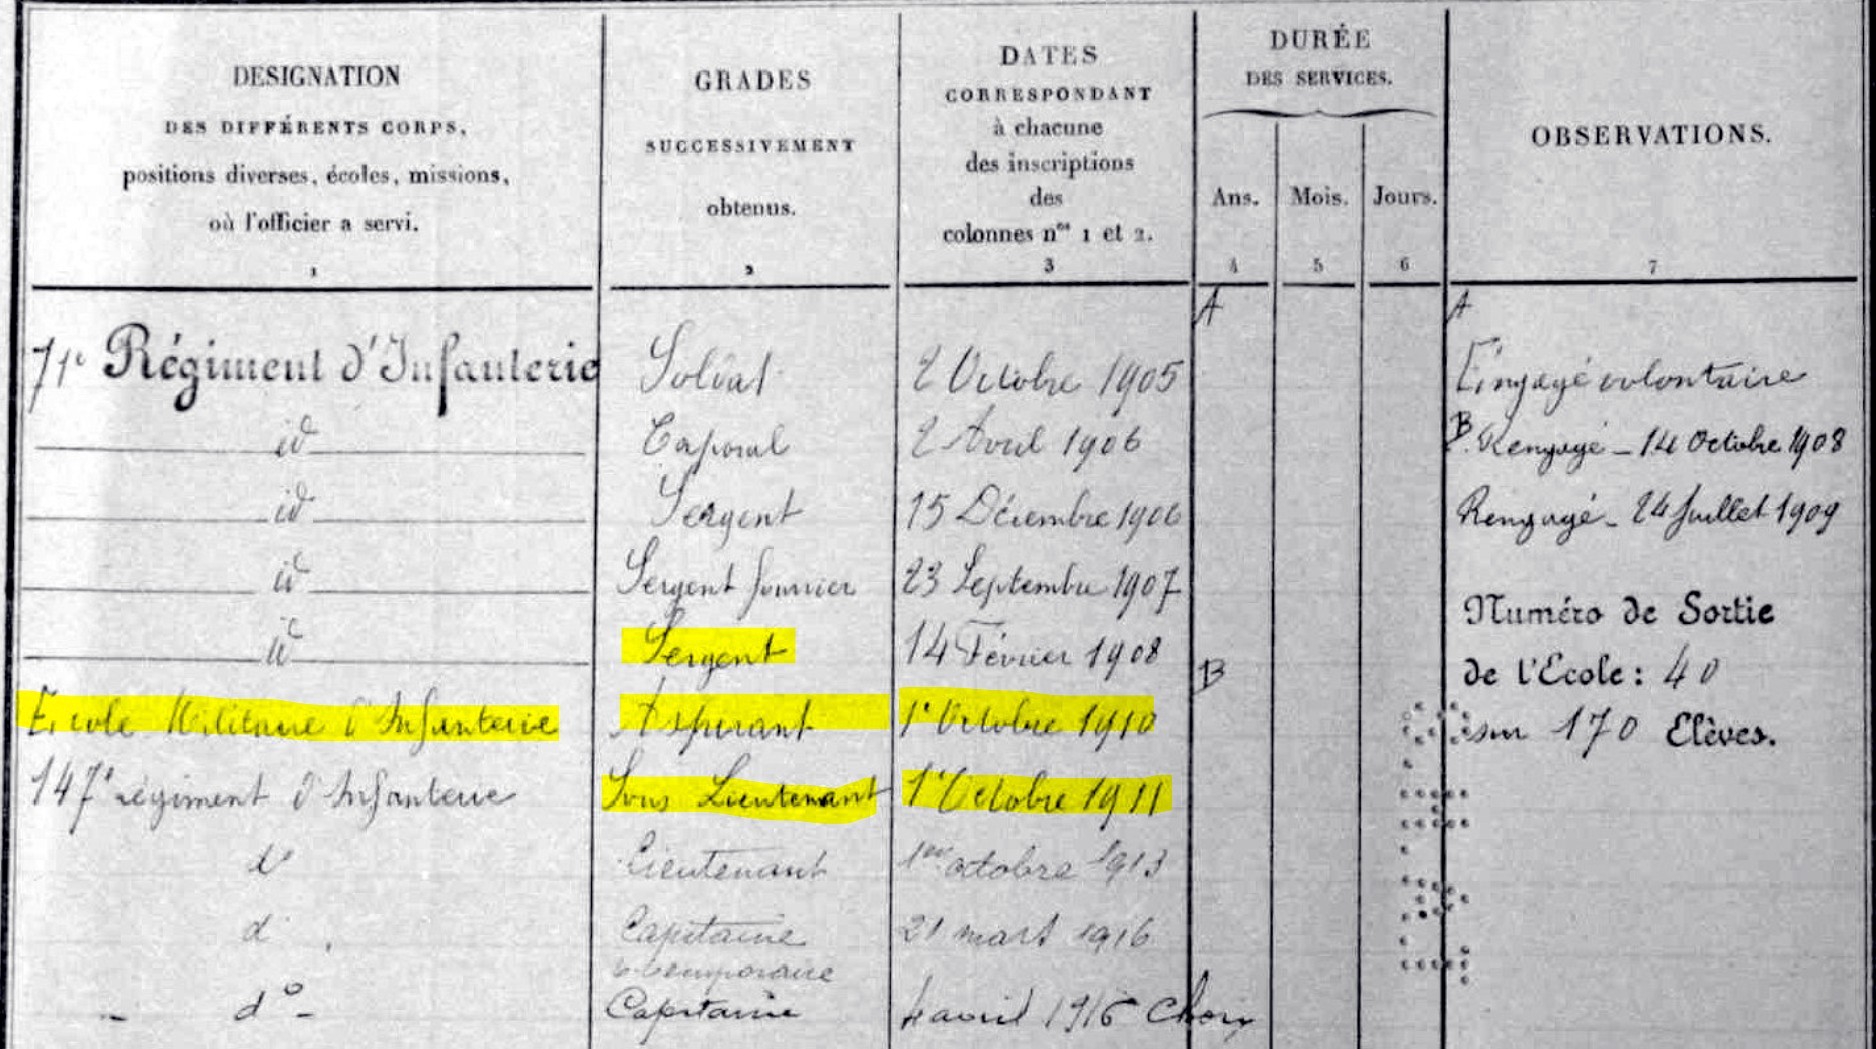 DESIGNATION
DES DIFFÉRENTS CORPS,
positions diverses, écoles, missions,
où l'officier a servi.
1
GRADES
SUCCESSIVEMENT
obtenus.
2
DATES
CORRESPONDANT
à chacune
des inscriptions
des
colonnes nos 1 et 2.
3
DURÉE
DES SERVICES.
Ans. Mois. Jours.
4 5 6
OBSERVATIONS.
7
A A
71e Régiment d'Infanterie Soldat 2 Octobre 1905 Engagé volontaire
id Caporal 2 Avril 1906 B. Rengagé - 14 Octobre 1908
id Sergent 15 Décembre 1906 Rengagé - 24 Juillet 1909
id Sergent fourrier 23 Septembre 1907
Numéro de Sortie
id Sergent 14 Février 1908 B
de l'Ecole : 40
Ecole Militaire d'Infanterie Aspirant 1er Octobre 1910 sur 170 Elèves.
147e régiment d'Infanterie Sous Lieutenant 1er Octobre 1911
do Lieutenant 1er octobre 1913
d Capitaine 21 mars 1916
temporaire
- do - Capitaine avril 1916 Choix